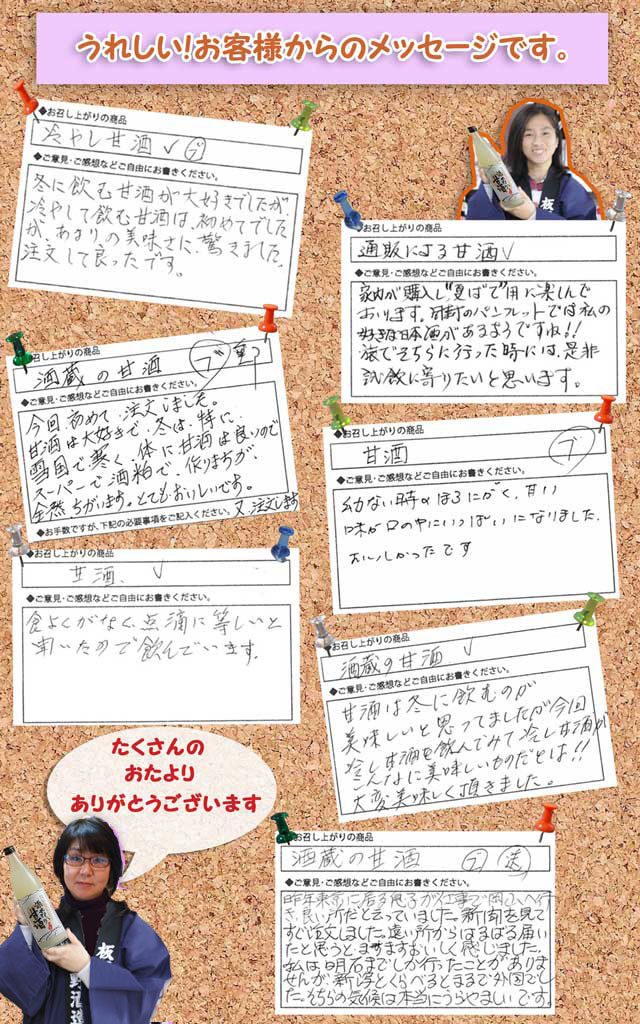 うれしい!お客様からのメッセージです。
◆お召し上がりの商品
冷やし甘酒 ✓ ブ
◆ご意見・ご感想などご自由にお書きください。
冬に飲む甘酒が大好きでしたが、
冷やして飲む甘酒は、初めてでした
が、あまりの美味さに、驚きました。
注文して良ったです。
板
◆お召し上がりの商品
通販による甘酒 ✓
◆ご意見・ご感想などご自由にお書きください。
家内が購入し"夏ばて"用に楽しんで
おります。同封のパンフレットでは私の
好きな日本酒があるようですね!!
旅でそちらに行った時には、是非
試飲に寄りたいと思います。
お召し上がりの商品
酒蔵の甘酒 ブ
◆ご意見・ご感想などご自由にお書きください。
今回初めて、注文しました。
甘酒は大好きで、冬は、特に、
雪国で寒く、体に甘酒は良いので
スーパーで酒粕で、作りますが、
全然ちがいます。とてもおいしいです。
又、注文します
◆お手数ですが、下記の必要事項をご記入ください。
お召し上がりの商品
甘酒 ブ
◆ご意見・ご感想などご自由にお書きください。
幼ない時のほろにがく、甘い
味が口の中にいっぱいになりました。
おいしかったです
◆お召し上がりの商品
甘酒、 ✓
◆ご意見・ご感想などご自由にお書きください。
食よくがなく、点滴に等しいと
聞いたので飲んでいます。
お召し上がりの商品
酒蔵の甘酒 ✓
◆ご意見・ご感想などご自由にお書きください。
甘酒は冬に飲むのが
美味しいと思ってましたが今回
冷し甘酒を飲んでみて冷し甘酒が
こんなに美味しいものだとは!!
大変美味しく頂きました。
たくさんの
おたより
ありがとうございます
お召し上がりの商品
酒蔵の甘酒 ブ 送
◆ご意見・ご感想などご自由にお書きください。
昨年東京に居る息子が仕事で岡山へ行
き、良い所だと云っていました。新聞を見て
すぐ注文しました。遠い所からはるばる届い
たと思うとますますおいしく感じました。
私は明石までしか行ったことがありま
せんが新潟とくらべるとまるで外国でし
た。そちらの気候は本当にうらやましいです。
板
野酒造